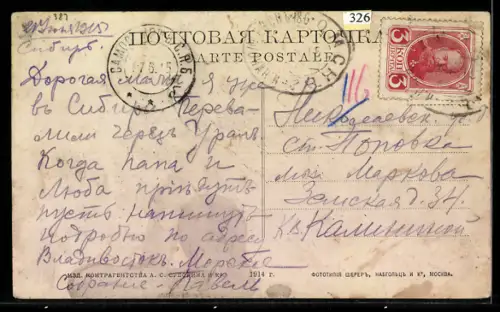 326
ПОЧТОВАЯ КАРТОЧКА
CARTE POSTALE
ОМСКЪ
3 КОП
3
Сибирь.
Дорогая мама, я уже
въ Сибири. Перева-
лили черезъ Уралъ.
Когда папа и
Люба
пусть напишутъ
подробно по адресу
Владивостокъ.
Собрание Павелъ
116
Николаевск.
ст. Поповка
Маркова
Земская д. 34.
кв. Калининой
ИЗД. КОНТРАГЕНТСТВА А. С. СУВОРИНА И Ко
1914 г.
ФОТОТИПІЯ ШЕРЕРЪ, НАБГОЛЬЦЪ И Ко, МОСКВА.